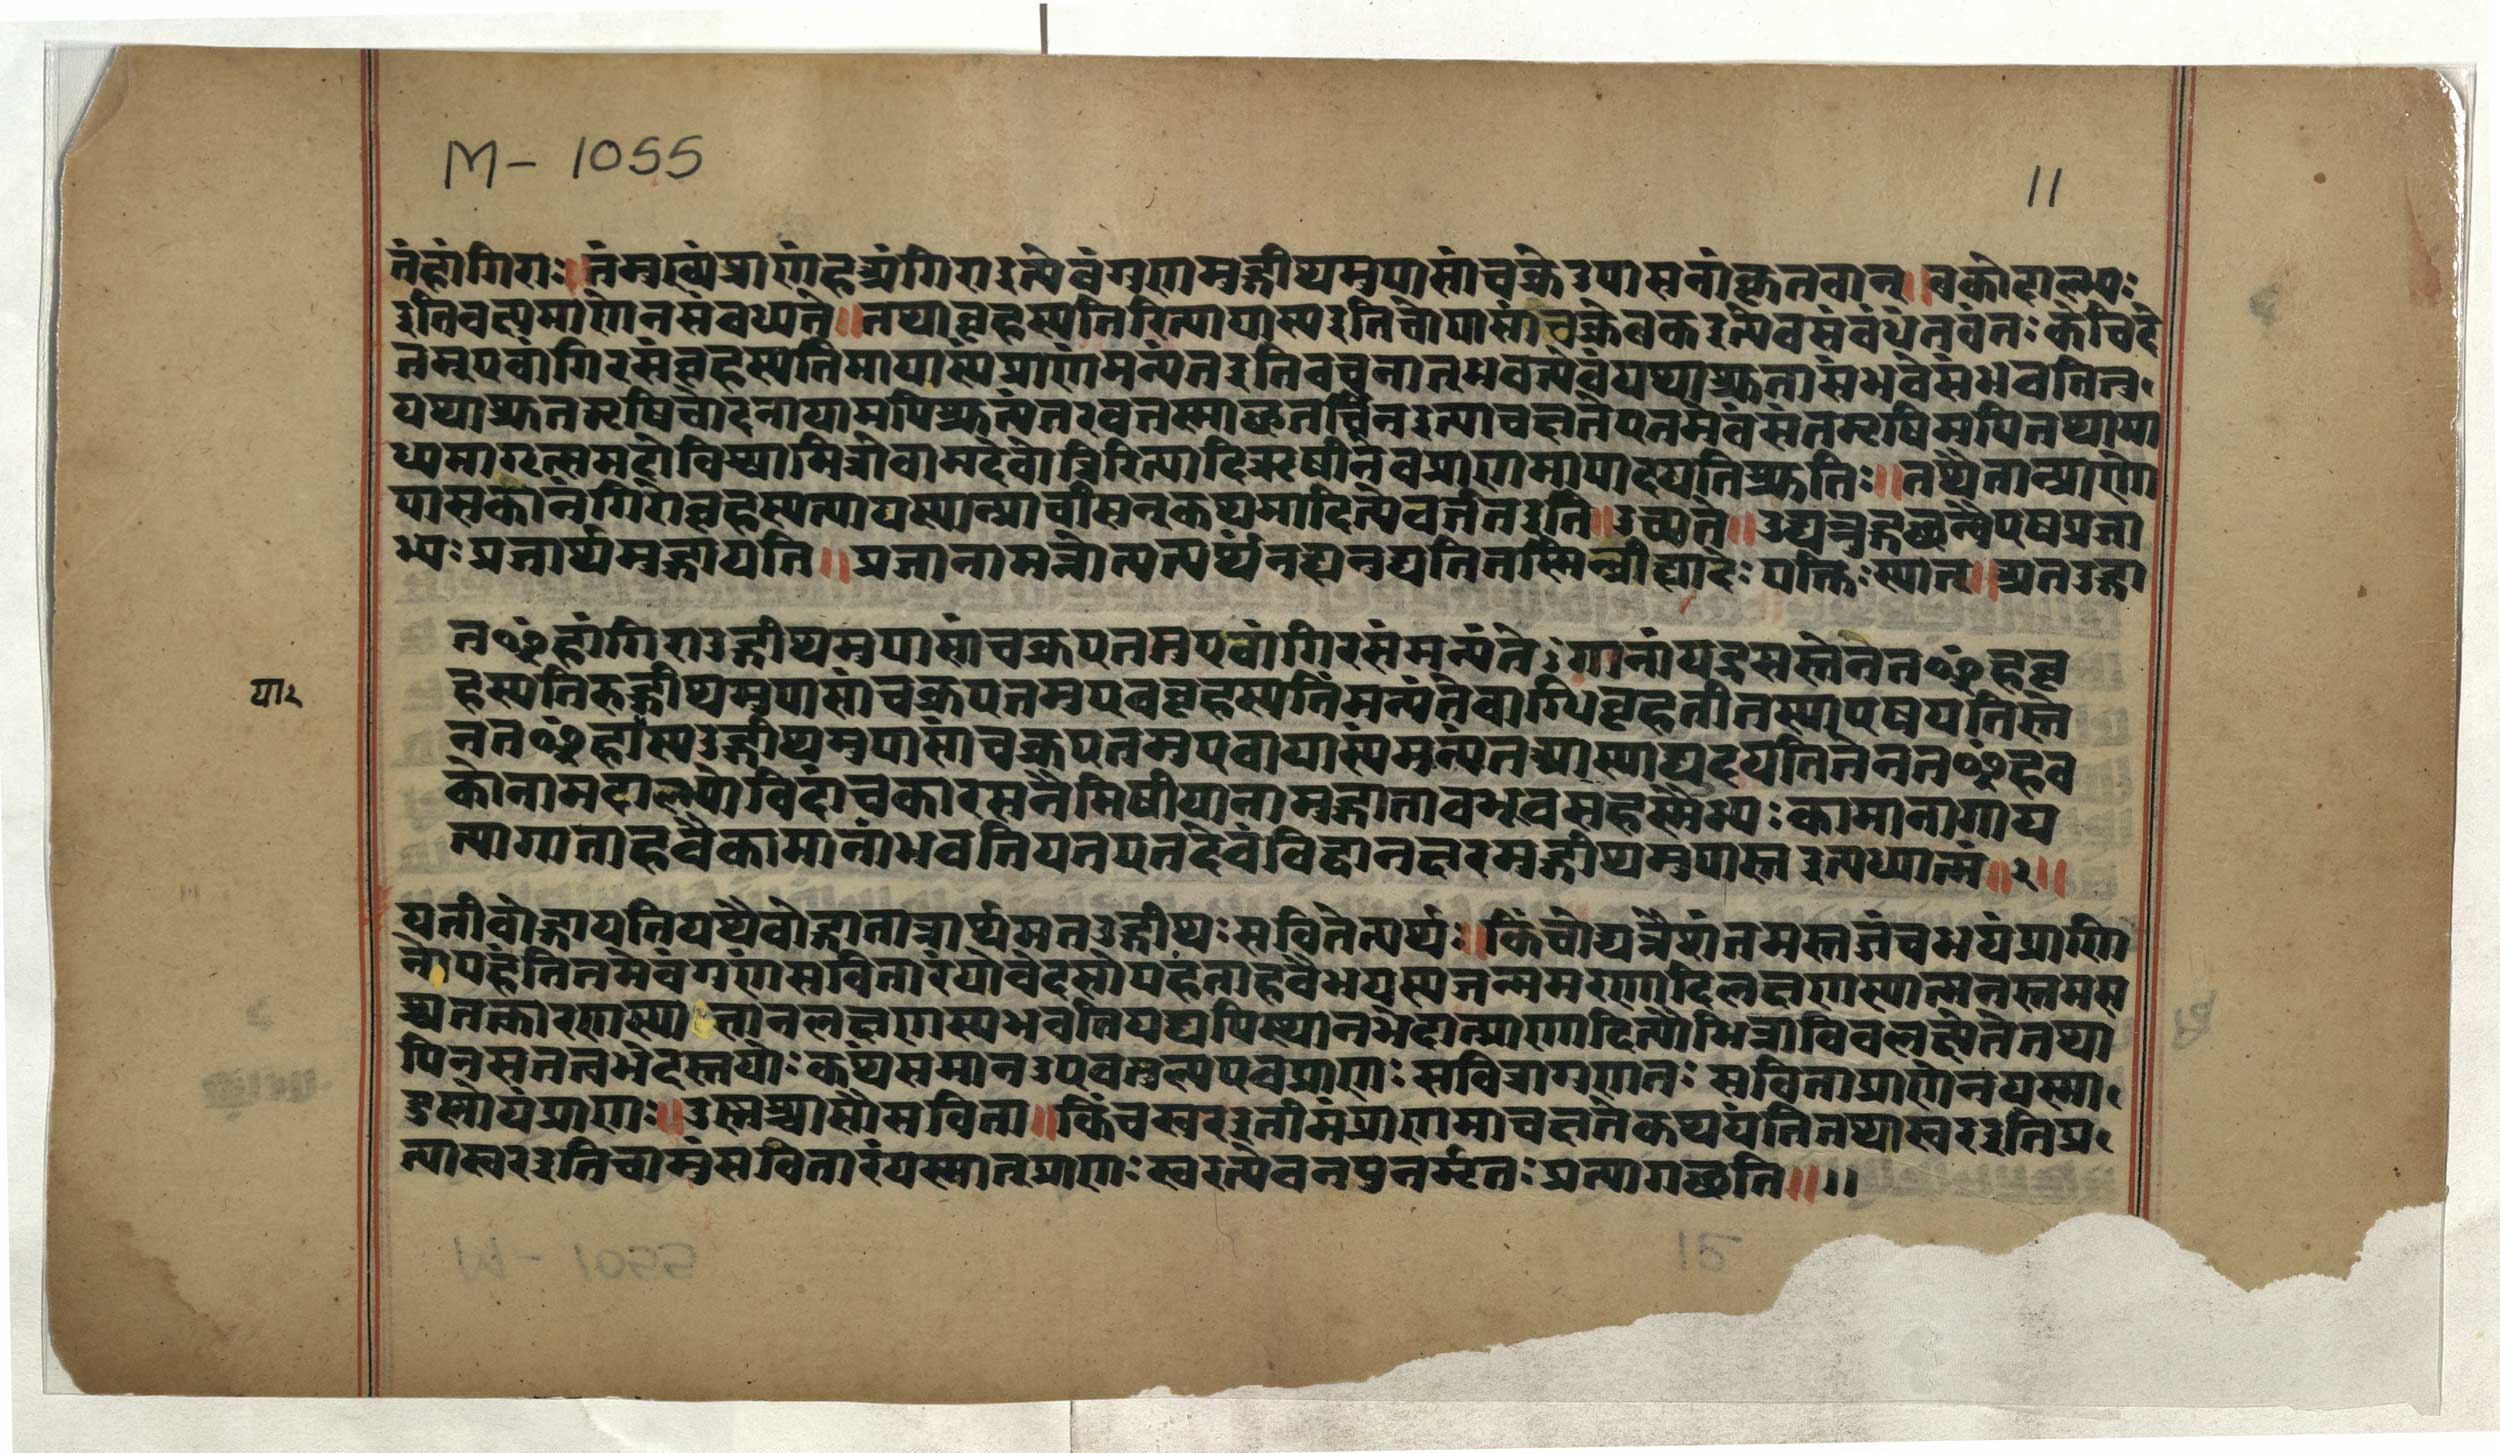 M - 1055
11
तंहांगिराः॥तंमुख्यंप्राणंहअंगिराइत्येवंगुणमुद्गीथमुपासांचक्रेउपासनांकृतवान्॥वकोदाल्भ्यः
इतिवक्ष्यमाणेनसंवध्यते॥तथाबृहस्पतिरित्यायास्यइतिचोपासांचक्रेवकइत्येवसंवंधंतवंतः केचिदे
तमुएवांगिरसंबृहस्पतिमायास्यंप्राणंमन्यंतइतिवचनात्भवत्येवंयथाश्रुतासंभवेसंभवतितु
यथाश्रुतऋषिचोदनायामपिश्रुत्यंतरवत्तस्माच्छतर्चिनइत्याचक्षतेएतमेवसंतमृषिमपितथामा
ध्यमागृत्समदोविश्वामित्रोवामदेवोत्रिरित्यादिऋषीनेवप्राणमापादयतिश्रुतिः॥तथैतान्प्राणो
पासकानंगिरोबृहस्पत्यायास्यान्प्राची
भ्यः प्रजार्थमुद्गायति॥प्रजानामन्नोत्पत्त्यर्थंनह्यनुद्यतितस्मिन्व्रीह्यादेः पक्तिः स्यात्॥अतउद्गा
तꣳहांगिराउद्गीथमुपासांचक्रएतमुएवांगिरसंमन्यंतेंगानांयद्रसस्तेनतꣳहबृ
हस्पतिरुद्गीथमुपासांचक्रएतमुएवबृहस्पतिंमन्यंतेवाग्घिबृहतीतस्याएषपतिस्ते
नतꣳहास्यउद्गीथमुपासांचक्रएतमुएवायास्यंमन्यंतआस्याद्यदयतितेनतꣳहव
कोनामदाल्भ्योविदांचकारसनैमिषीयानामुद्गाताबभूवसहस्मैभ्यः कामानागाय
त्यागाताहवैकामानांभवतियएतदेवंविद्वानक्षरमुद्गीथमुपास्तइत्यध्यात्मं॥२॥
या२
यतीवोद्गायतियथैवोद्गातान्नार्थमतउद्गीथः सवितेत्यर्थः॥किंचोद्यन्नैशंतमस्तज्जंचभयंप्राणि
नोपहंतितमेवंगुणंसवितारंयोवेदसोपहंताहवैभयस्यजन्ममरणादिलक्षणस्यात्मनस्तमस
श्चतत्कारणस्याज्ञानलक्षणस्यभवतियद्यपिस्थानभेदात्प्राणादित्यौभिन्नाविवलक्ष्येतेतथा
पिनसतत्वभेदस्तयोः कथंसमानउएवतुल्यएवप्राणः सवित्रागुणतः सविताप्राणेनयस्मा
दुस्मोयंप्राणः॥उस्मश्चासौसविता॥किंचस्वरइतीमंप्राणमाचक्षतेकथयंतितथास्वरइतिप्र
त्यास्वरइतिचामुंसवितारंयस्मात्प्राणः स्वरत्येवनपुनर्मृतः प्रत्यागच्छति॥॥